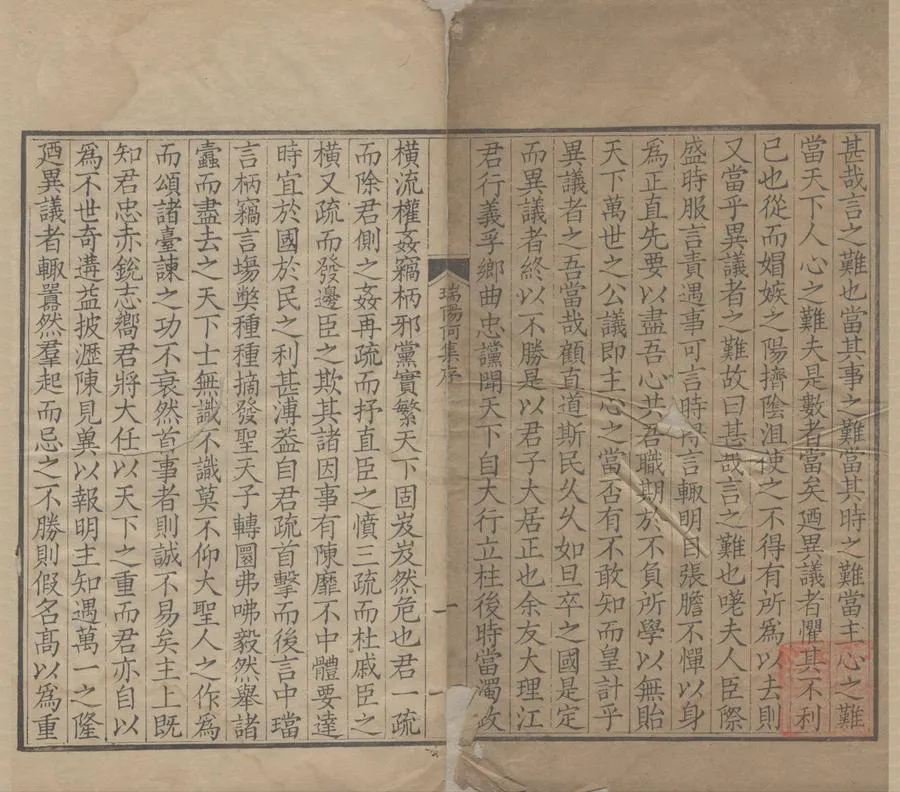 甚哉言之難也當其事之難當其時之難當主心之難
當天下人心之難夫是數者當矣廼異議者懼其不利
已也從而媢嫉之陽擠陰沮使之不得有所爲以去則
又當乎異議者之難故曰甚哉言之難也嗟夫人臣際
盛時服言責遇事可言時得言輙明目張膽不憚以身
爲正直先要以盡吾心共君職期於不負所學以無貽
天下萬世之公議即主心之當否有不敢知而皇計乎
異議者之吾當哉顧直道斯民久久如旦卒之國是定
而異議者終以不勝是以君子大居正也余友大理江
君行義孚鄉曲忠讜聞天下自大行立柱後時當濁政
瑞陽阿集序
一
橫流權姦竊柄邪黨實繁天下固岌岌然危也君一疏
而除君側之姦再疏而抒直臣之憤三疏而杜戚臣之
橫又疏而發邊臣之欺其諸因事有陳靡不中體要達
時宜於國於民之利甚溥葢自君疏首擊而後言中璫
言柄竊言塲弊種種摘發聖天子轉圜弗咈毅然舉諸
蠹而盡去之天下士無識不識莫不仰大聖人之作爲
而頌諸臺諫之功不衰然首事者則誠不易矣主上旣
知君忠赤銳志嚮君將大任以天下之重而君亦自以
爲不世奇遘益披瀝陳見兾以報明主知遇萬一之隆
廼異議者輙囂然羣起而忌之不勝則假名高以爲重